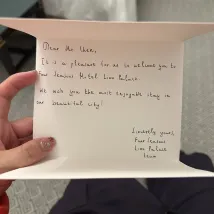 Dear Mr Uken,
It is a pleasure for us to welcome you to
Four Seasons Hotel Lion Palace.
We wish you the most enjoyable stay in
our beautiful city!
Sincerely yours,
Four Seasons
Lion Palace
Team